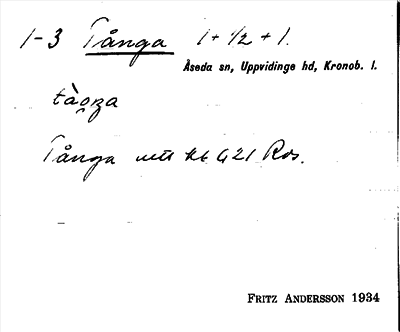 1-3 Tånga 1 + 1/2 + 1.
Åseda sn, Uppvidinge hd, Kronob. l.
Tånga utt kt G21 Ros.
FRITZ ANDERSSON 1934